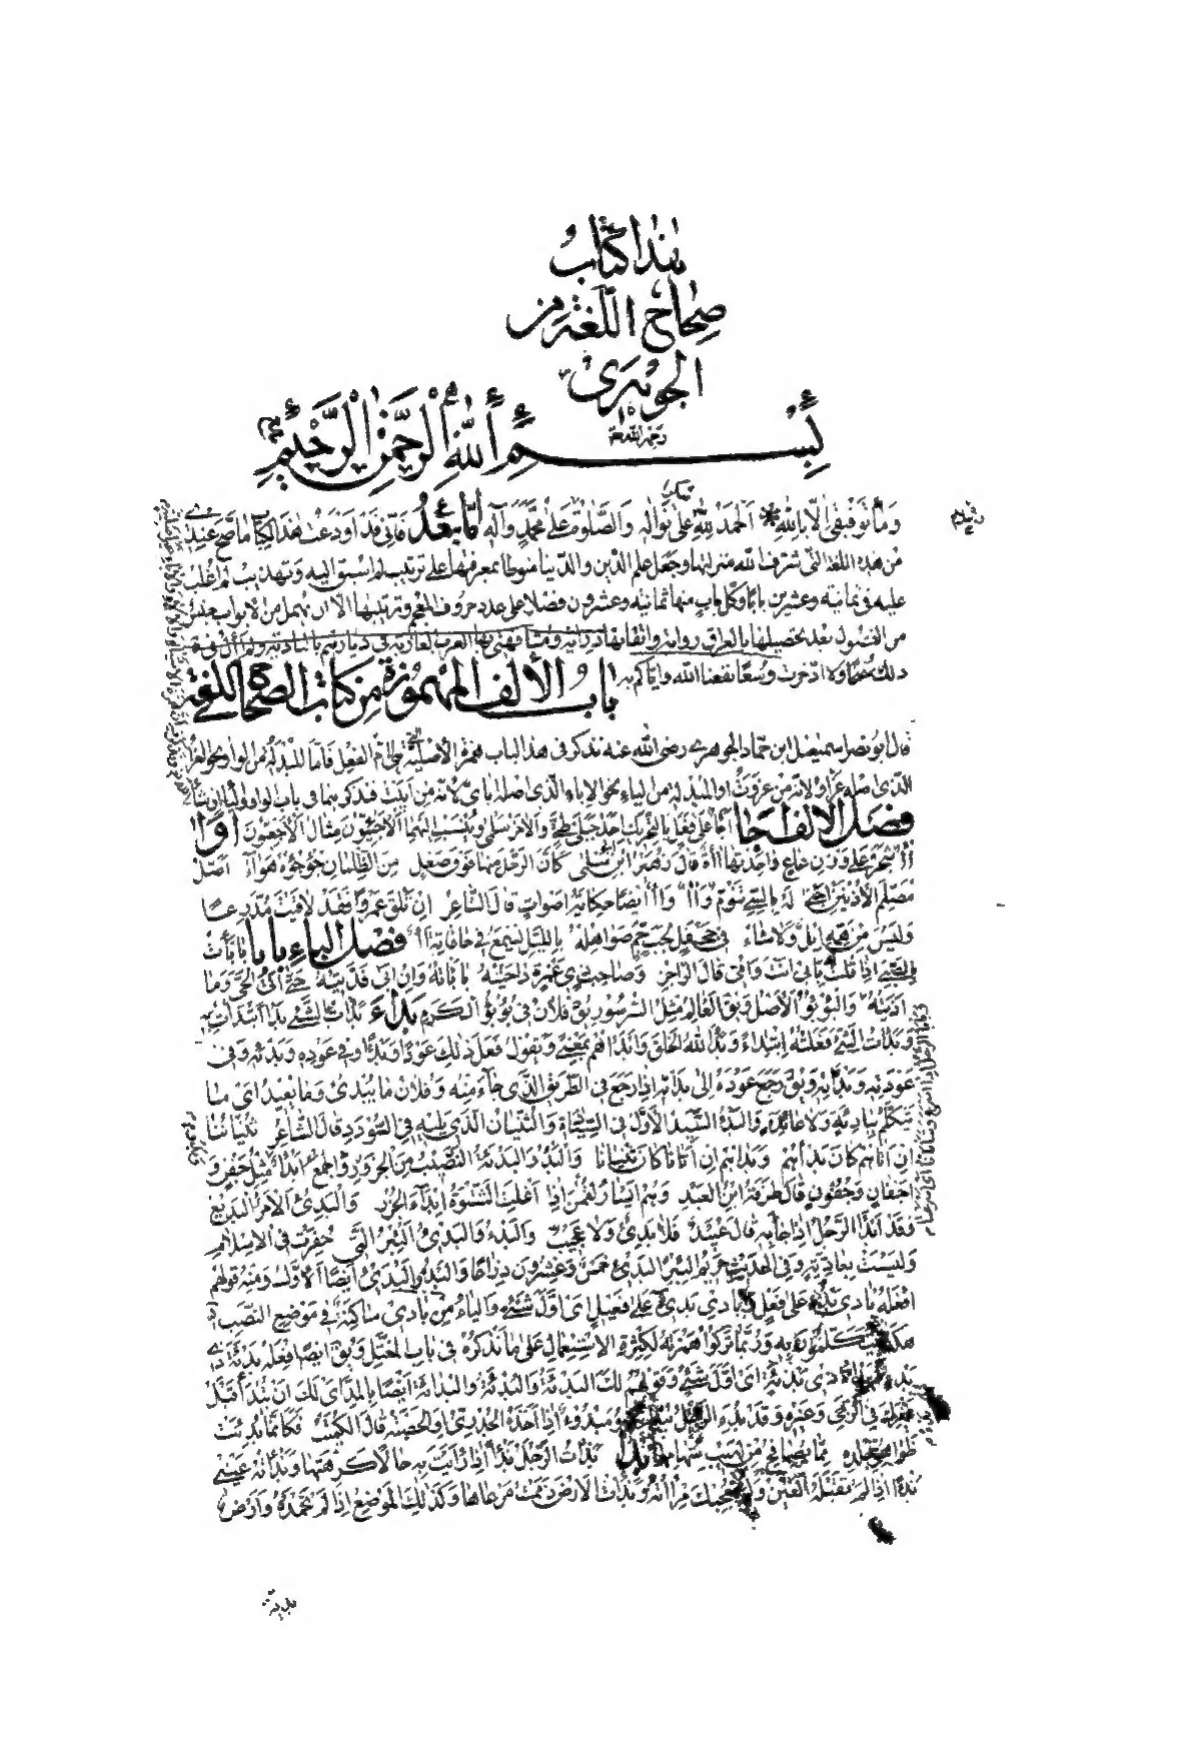 هذا كتاب
صحاح اللغة من
الجوهري
رحمة الله
بِسْمِ اللهِ الرَّحْمٰنِ الرَّحِيْمِ
وما توفيقي الا بالله الحمد لله على نواله والصلوة على محمد وآله اما بعد فاني قد اودعت هذا الكتاب ما صح عندي
من هذه اللغة التي شرف الله منزلتها وجعل علم الدين والدنيا منوطا بمعرفتها على ترتيب لم اسبق اليه وتهذيب لم اغلب
عليه في ثمانية وعشرين بابا وكل باب منها ثمانية وعشرون فصلا على عدد حروف المعجم وترتيبها الا ان يهمل من الابواب جنس
من الفصول بعد تحصيلها بالعراق رواية واتقانها دراية ومشافهتي بها العرب العاربة في ديارهم بالبادية ولم آل في
ذلك نصحا ولا ادخرت وسعا نفعنا الله واياكم به
باب الألف المهموزة من كتاب الصحاح اللغة
قال ابو نصر اسمعيل ابن حماد الجوهري رضي الله عنه نذكر في هذا الباب همزة الأصلية التي لام الفعل فاما المبدلة من الواو نحو العزاء
الذي اصله عزاو لانه من عزوت او المبدلة من الياء نحو الاباء الذي اصله اباي لانه من ابيت فنذكرهما في باب الواو والياء ان شاء
فصل الالف اجا أجأ على فعل بالتحريك احد جبلي طيئ والآخر سلمى وينسب اليهما الأجئيون مثال الأجعيون اوا
شجر على وزن عاع واحدتها آأة قال زهير ابن ابي سلمى كأن الرحل منها فوق صعل من الظلمان جؤجؤه هواء اصك
مصلم الأذنين اجنى له بالسي تنوم وآء وآء أيضا حكاية اصوات قال الشاعر ان تلق عمرا فقد لاقيت مدرعا
وليس من همه ابل ولا شاء في جحفل لجب جم صواهله بالليل تسمع في حافاته آء فصل الباء بابا بأبأت
الصبي اذا قلت بابي انت وامي قال الراجز وصاحب ذي غمرة داجيته بأبأته وان ابى فديته حتى اتى الحي وما
آذيته والبؤبؤ الأصل ويق العالم مثل السرسور يق فلان في بؤبؤ الكرم بدأ بدأت بالشيء بدأ ابتدأت به
وبدأت الشيء فعلته ابتداء وبدأ الله الخلق وابدأهم بمعنى وتقول فعل ذلك عودا وبدءا وفي عوده وبدئه وفي
عودته وبدأته ويق رجع عوده الى بدئه اذا رجع في الطريق الذي جاء منه وفلان ما يبدئ وما يعيد اي ما
يتكلم ببادئة ولا عائدة والبدء السيد الأول في السيادة والثنيان الذي يليه في السودد قال الشاعر ثنياننا
ان اتاهم كان بدأهم وبدأهم ان اتانا كان ثنيانا والبدء والبدأة النصيب من الجزور والجمع ابداء مثل جفن و
اجفان وجفون قال طرفة ابن العبد وهم ايسار لقمن اذا اغلت الشتوة ابداء الجزر والبدئ الأمر البديع
وقد ابدأ الرجل اذا جاء به قال عبيد فلا بدئ ولا عجيب والبدء والبدئ البئر التي حفرت في الاسلام
وليست بعادية وفي الحديث حريم البئر البدئ خمس وعشرون ذراعا والبدء والبدئ أيضا الاول ومنه قولهم
افعله بادي بدء على فعل وبادي بدي على فعيل اي اول شيء والياء من بادي ساكنة في موضع النصب
هكذا يتكلمون به وربما تركوا همزه لكثرة الاستعمال على ما نذكره في باب المعتل ويق ايضا افعله بدأة ذي
بدء اي اول شيء وقولهم لك البدء والبدأة والبداءة ايضا بالمد اي لك ان تبدأ قبل
غيرك في الرمي وغيره وقد بدئ الرجل فهو مبدوء اذا اخذه الجدري او الحصبة قال الكميت فكأنما بدئت
ظواهر جلده مما يصافح من لهيب سهامها بذأ بذأت الرجل بذأ اذا رأيت به حالا كرهتها وبذأته عيني
بذءا اذا لم تقبله العين ولم تعجبك مرآته وبذأت الارض ذممت مرعاها وكذلك الموضع اذا لم تحمده وارض